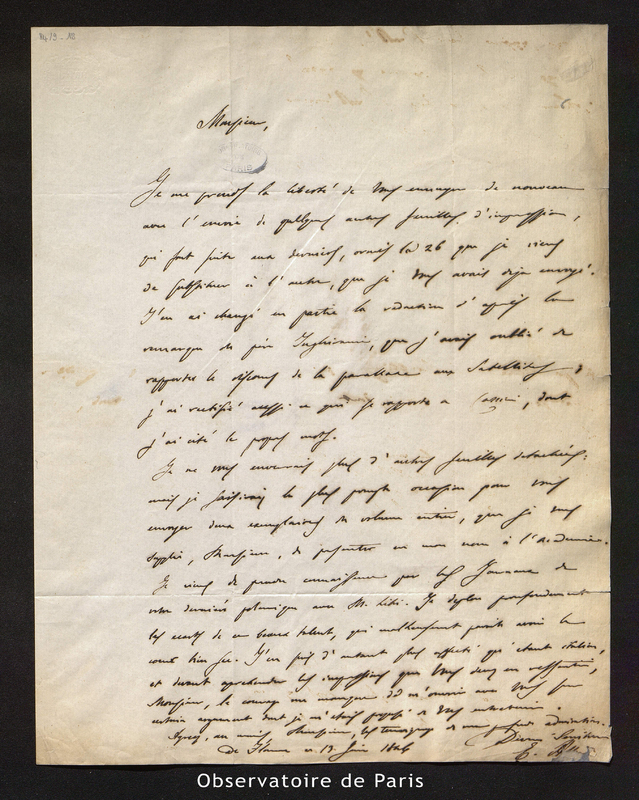 Monsieur,
Je me prends la liberté de vous envoyer de nouveau
avec l'envoi de quelques autres feuilles d'impression,
qui font suite aux derniers, la 26 que je viens
de substituer à l'autre, que je vous avais déja envoyé.
J'en ai changé en partie la rédaction d'après la
remarque du père Inghirami, que j'avais oublié de
rapporter le discours de la parallaxe aux Satellites;
j'ai rectifié aussi ce qui se rapporte a Cassini, dont
j'ai cité les propres mots.
Je ne vous enverrai plus d'autres feuilles détachées:
mais je saisirai la plus prompte occasion pour vous
envoyer deux exemplaires du volume entier, que je vous
supplie, Monsieur, de présenter en mon nom à l'Académie.
Je viens de prendre connaissance par les Journaux de
votre dernière polémique avec M. Libri. Je déplore profondement
les écarts de ce beau talent, qui malheureusement parait avoir le
J'en suis d'autant plus affecté qu'étant italien,
et devant appréhender les impressions que vous devez en ressentir,
Monsieur, le courage me manque de m'ouvrir avec vous sur
certain argument dont je m'étais proposé de vous entretenir.
Agréez, Monsieur, les témoignages de ma profonde admiration.
de Florence ce 13 Juin 1846
Observatoire de Paris